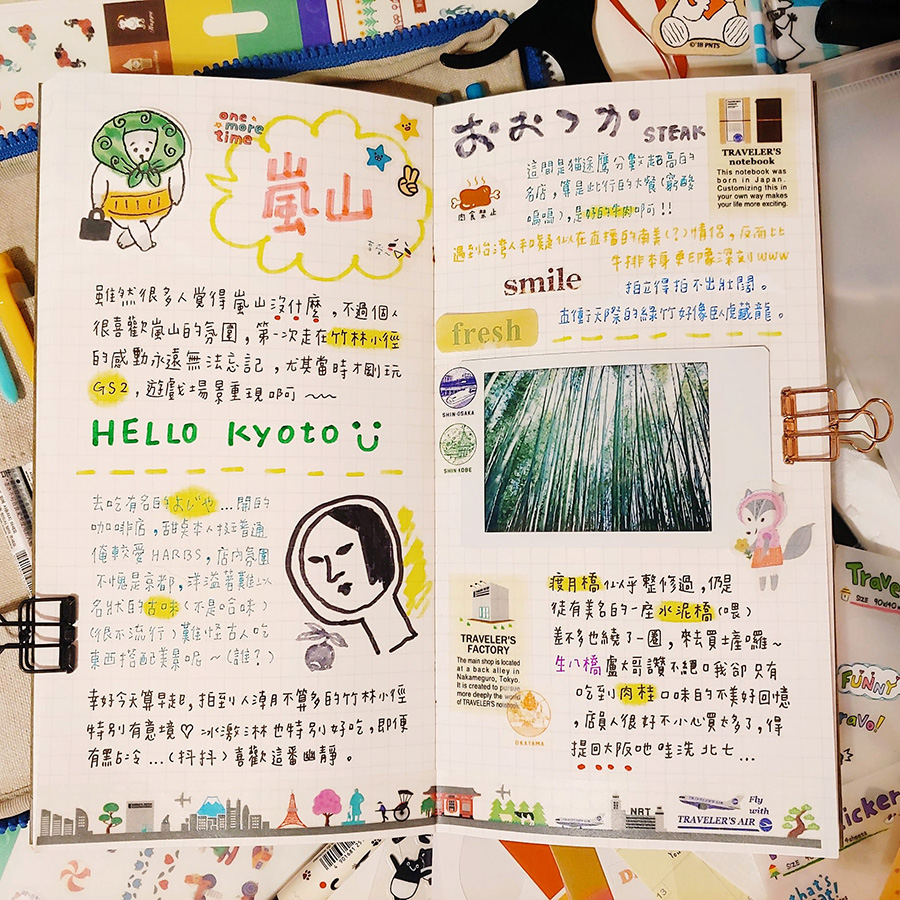 one
more
time
嵐山
雖然很多人覺得嵐山沒什麼，不過個人
很喜歡嵐山的氛圍，第一次走在竹林小徑
的感動永遠無法忘記，尤其當時才剛玩
GS2，遊戲場景重現啊
HELLO Kyoto
去吃有名的よじや…開的
咖啡店，甜點本人挺普通
俺較愛HARBS，店內氛圍
不愧是京都，洋溢著難以
名狀的古味（不是哈味）
（很不流行）難怪古人吃
東西搭配美景呢～（誰？）
幸好今天算早起，拍到人潮不算多的竹林小徑
特別有意境♡冰激淋也特別好吃，即便
有點冷…（抖抖）喜歡這番幽靜。
おおつか STEAK
這間是貓途鷹分數超高的
名店，算是此行的大餐（窮酸
嗚嗚），是好的牛肉啊！！
肉食禁止
遇到台灣人和疑似在直播的南美（？）情侶，反而比
牛排本身更印象深刻www
smile
拍立得拍不出壯闊。
直衝天際的綠竹好像臥虎藏龍。
fresh
TRAVELER'S
notebook
This notebook was
born in Japan.
Customizing this in
your own way makes
your life more exciting.
SHIN-OSAKA
SHIN-KOBE
渡月橋似乎整修過，仍是
徒有美名的一座水泥橋（喂）
差不多也繞了一圈，來去買土產囉～
生八橋盧大哥讚不絕口我卻只有
吃到肉桂口味的不美好回憶
，店員人很好不小心買太多了，得
提回大阪吔哇洗北七…
TRAVELER'S
FACTORY
The main shop is located
at a back alley in
Nakameguro, Tokyo.
It is created to pursue
more deeply the world
of TRAVELER'S notebook.
OKAYAMA
NRT
Fly
with
TRAVELER'S AIR
©'18 PNTS
Trave
SIZE 90x90
FUNNY
ravo!
ticker
SIZE
that's